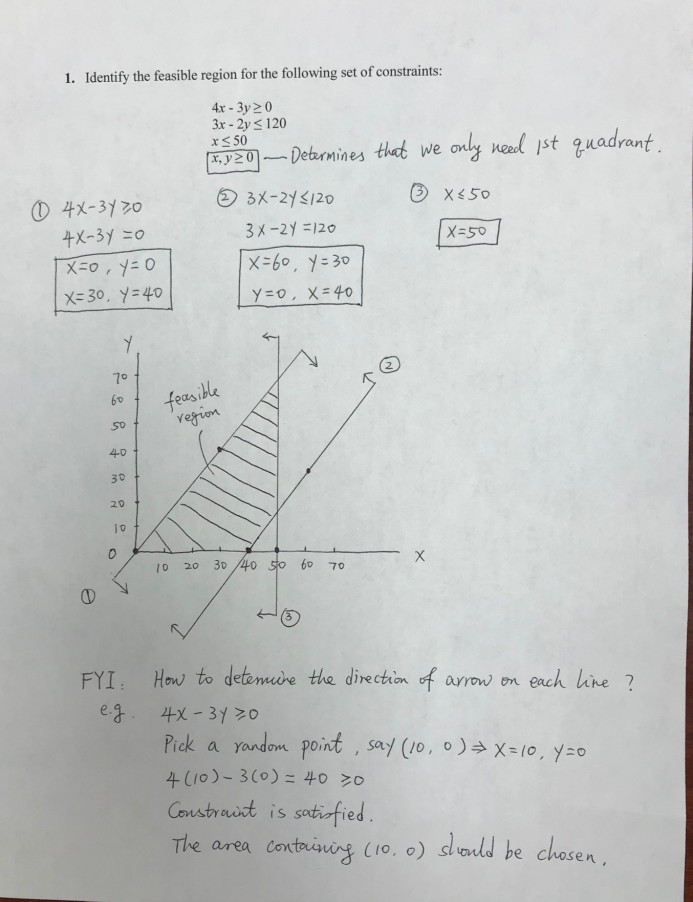 1. Identify the feasible region for the following set of constraints:
4x - 3y ≥ 0
3x - 2y ≤ 120
x ≤ 50
x, y ≥ 0 — Determines that we only need 1st quadrant.
① 4x-3y ≥0
4x-3y =0
x=0, y=0
x=30, y=40
② 3x-2y≤120
3x-2y=120
x=60, y=30
y=0, x=40
③ x≤50
x=50
Y
70
60
50
40
30
20
10
0
feasible
region
②
10 20 30 40 50 60 70
X
①
③
FYI: How to determine the direction of arrow on each line ?
e.g. 4x-3y ≥0
Pick a random point, say (10, 0) ⇒ x=10, y=0
4(10)-3(0) = 40 ≥0
Constraint is satisfied.
The area containing (10, 0) should be chosen.